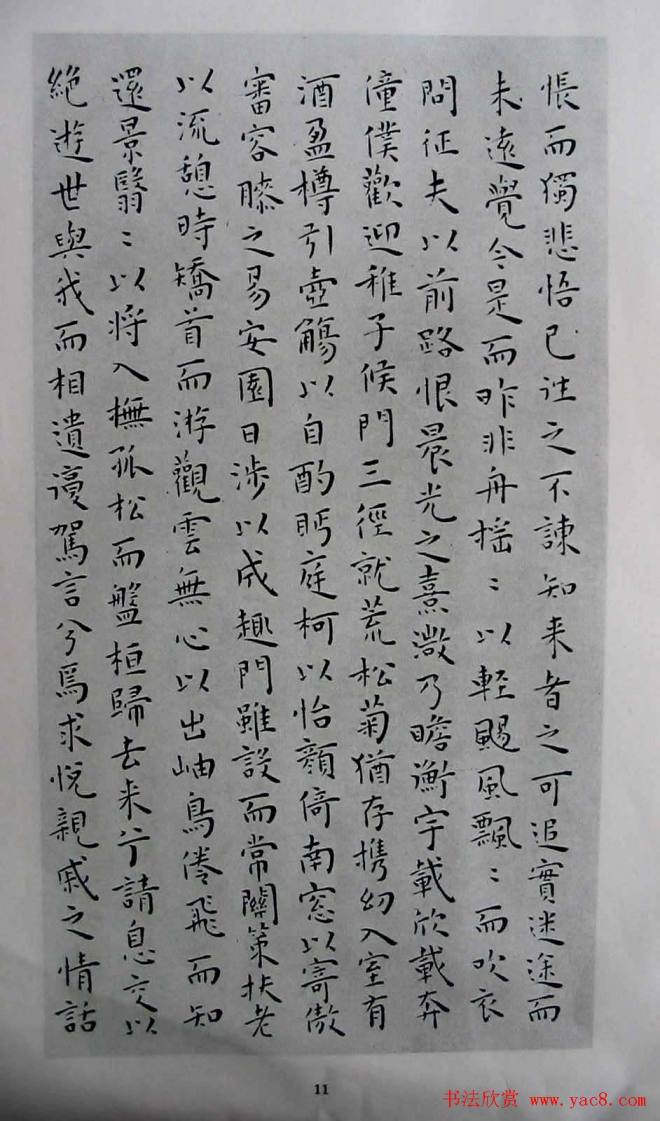 悵而獨悲悟已往之不諫知来者之可追實迷途而
未遠覺今是而昨非舟摇〻以輕颺風飄〻而吹衣
問征夫以前路恨晨光之熹微乃瞻衡宇載欣載奔
僮僕歡迎稚子候門三徑就荒松菊猶存携幼入室有
酒盈樽引壺觴以自酌眄庭柯以怡顔倚南窓以寄傲
審容膝之易安園日涉以成趣門雖設而常關策扶老
以流憩時矯首而游觀雲無心以出岫鳥倦飛而知
還景翳〻以将入撫孤松而盤桓歸去来兮請息交以
絶遊世與我而相遺復駕言兮焉求悦親戚之情話
11
书法欣赏 www.yac8.com